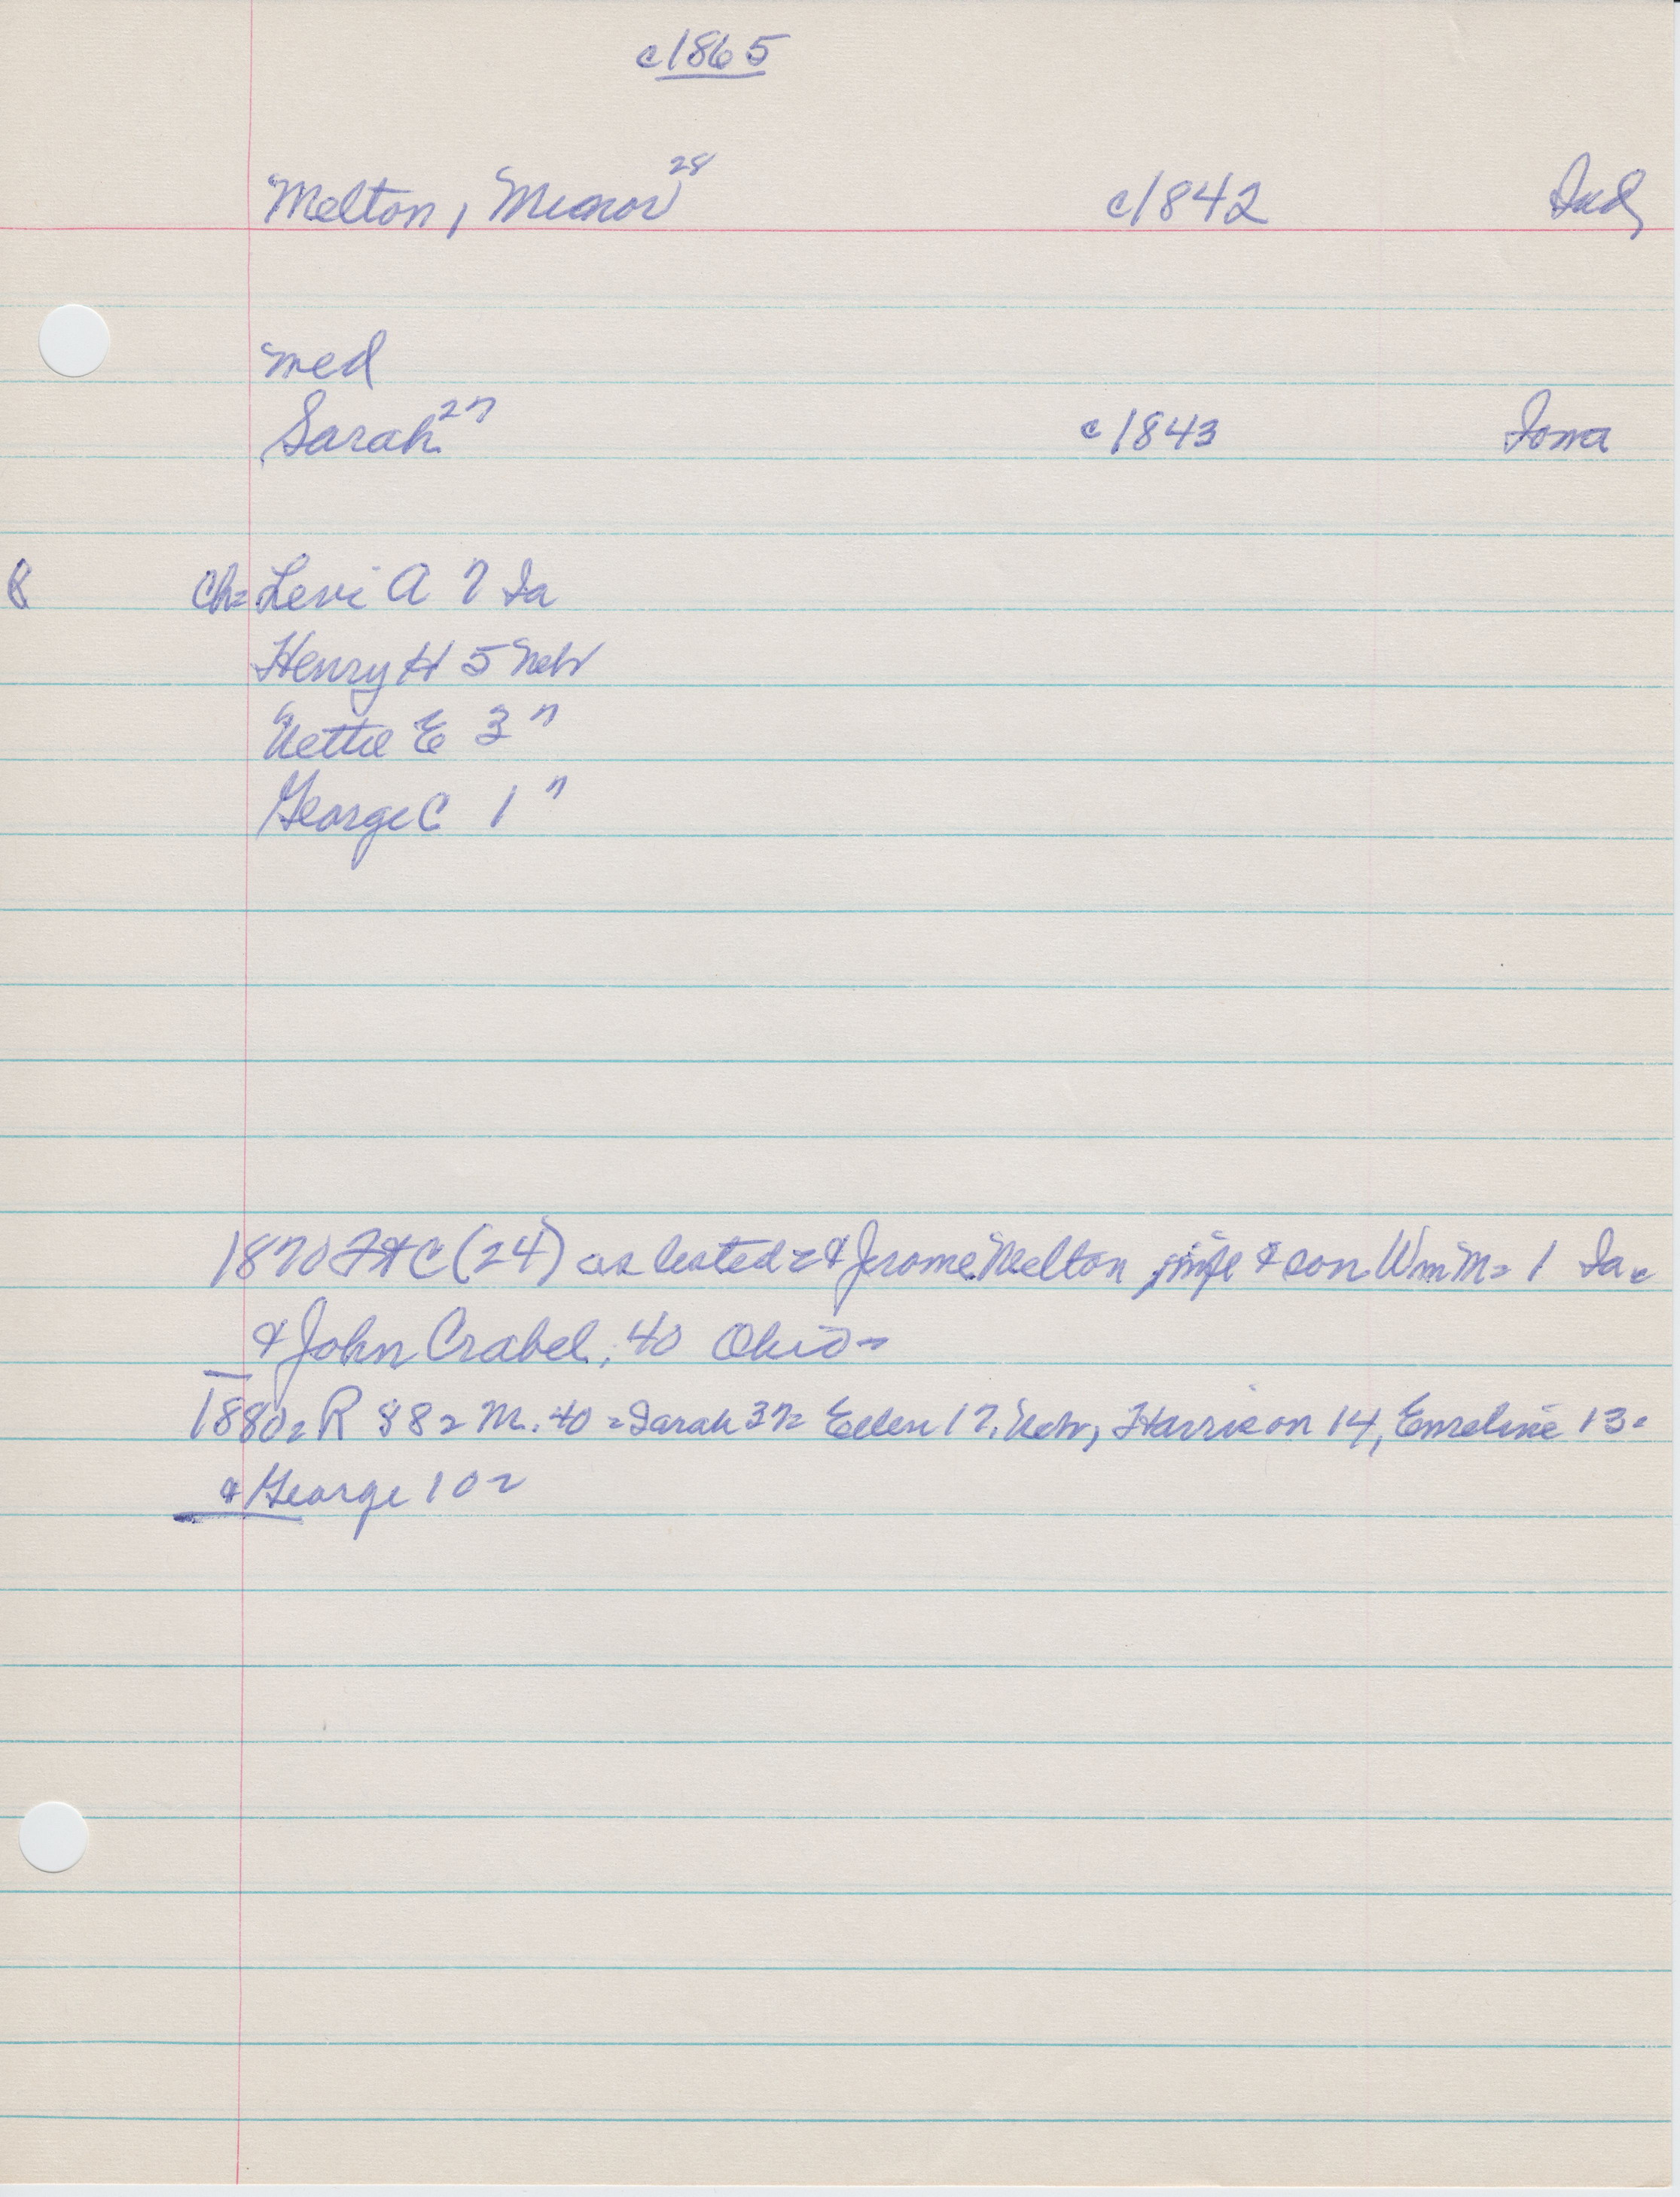 c1865
Melton, Minor 28 c1842 Ind,
med
Sarah 27 c1843 Iowa
8 Ch= Levi A 7 Ia
Henry H 5 Neb
Nettie E 3 "
George C 1 "
1870 F&C (24) as listed = & Jerome Melton, wife & son Wm M= 1 Ia.
& John Crabel, 40 Ohio-
1880= R 88= M. 40 = Sarah 37= Ellen 17, Neb, Harrison 14, Emeline 13.
& George 10 =